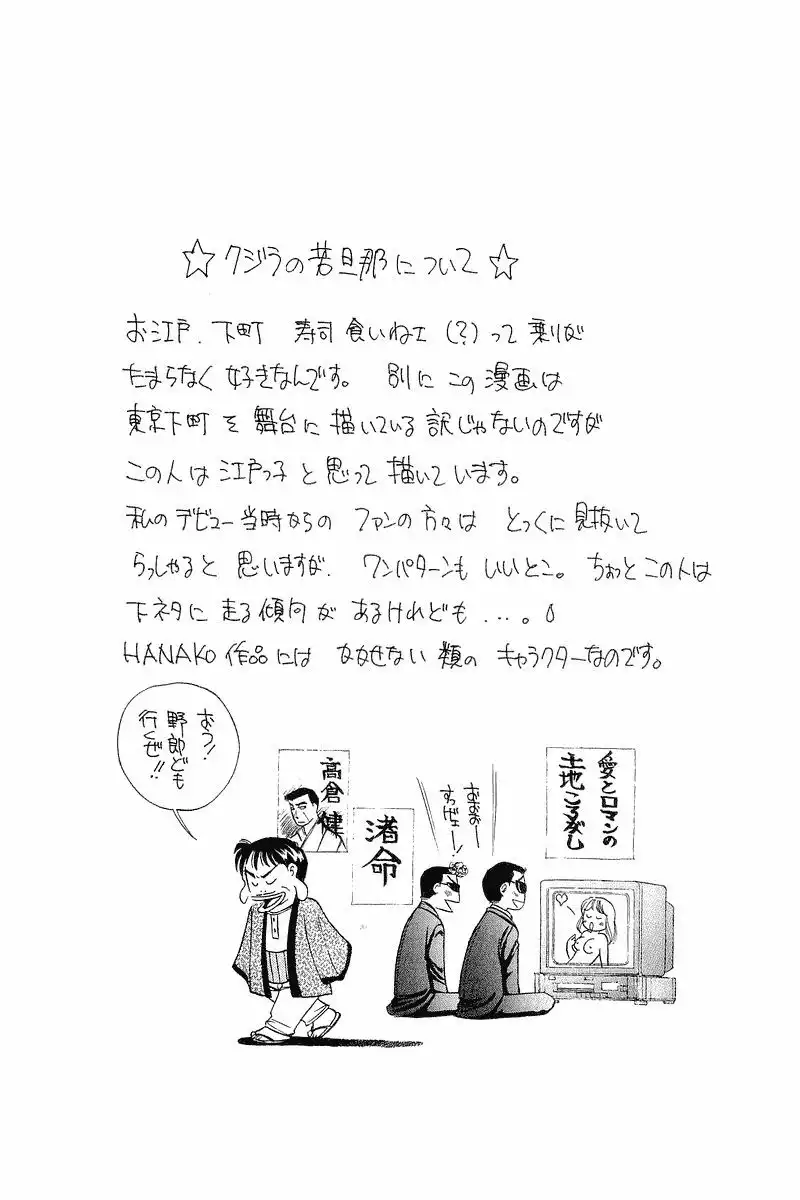 ☆クジラの若旦那について☆
お江戸、下町 寿司食いねェ(?)って乗りが
たまらなく好きなんです。 別にこの漫画は
東京下町を舞台に描いている訳じゃないのですが
この人は江戸っ子と思って描いています。
私のデビュー当時からの ファンの方々は とっくに見抜いて
らっしゃると思いますが、 ワンパターンもいいとこ。 ちょっとこの人は
下ネタに走る傾向があるけれども…。
HANAKO作品には かかせない類のキャラクターなのです。
おう!
野郎ども
行くぜ!!
高倉健
渚命
おおおー
すっげェー!!
愛とロマンの
土地ころがし